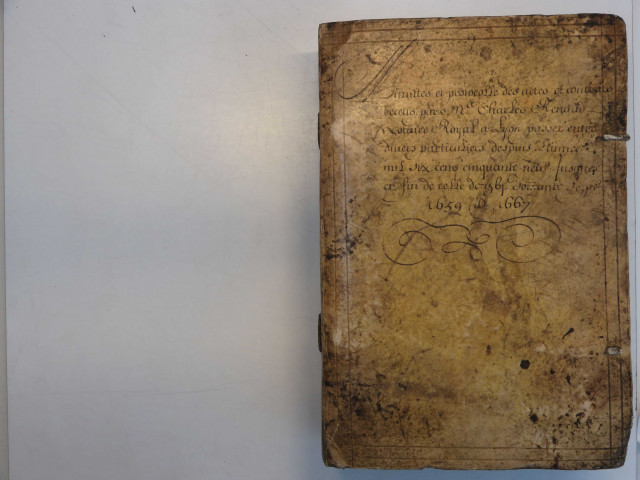 Minuttes et prothocolle des actes et contratz
receus par Me Charles Renaud
Notaire Royal a Lyon passez entre
divers particuliers despuis l'annee
mil six cens cinquante neuf jusques
et fin de celle de soixante sept
1659 a 1667